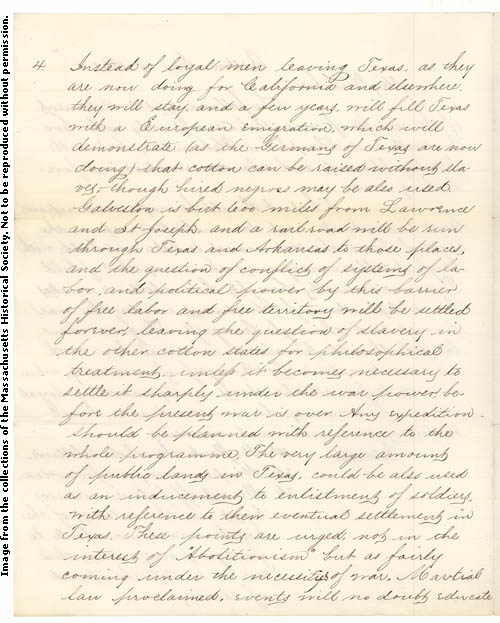 4. Instead of loyal men leaving Texas, as they
are now doing for California and elsewhere,
they will stay, and a few years, will fill Texas
with a European emigration, which will
demonstrate (as the Germans of Texas are now
doing) that cotton can be raised without sla-
ves,- though hired negros may be also used.
Galveston is but 600 miles from Lawrence
and St Joseph and a railroad will be run
through Texas and Arkansas to those places,
and the question of conflict of systems of la-
bor and political power by this barrier
of free labor and free territory will be settled
forever, leaving the question of slavery in
the other cotton states for philosophical
treatment, unless it becomes necessary to
settle it sharply under the war power, be-
fore the present war is over. Any expedition
should be planned with reference to the
whole programme. The very large amount
of public lands in Texas, could be also used
as an inducement to enlistment of soldiers,
with reference to their eventual settlement in
Texas. These points are urged, not in the
interest of "Abolitionism" but as fairly
coming under the necessities of war. Martial
law proclaimed, events will no doubt educate
Image from the collections of the Massachusetts Historical Society. Not to be reproduced without permission.